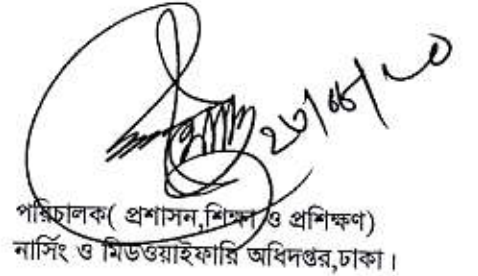 পরিচালক( প্রশাসন,শিক্ষা ও প্রশিক্ষণ)
নার্সিং ও মিডওয়াইফারি অধিদপ্তর,ঢাকা।